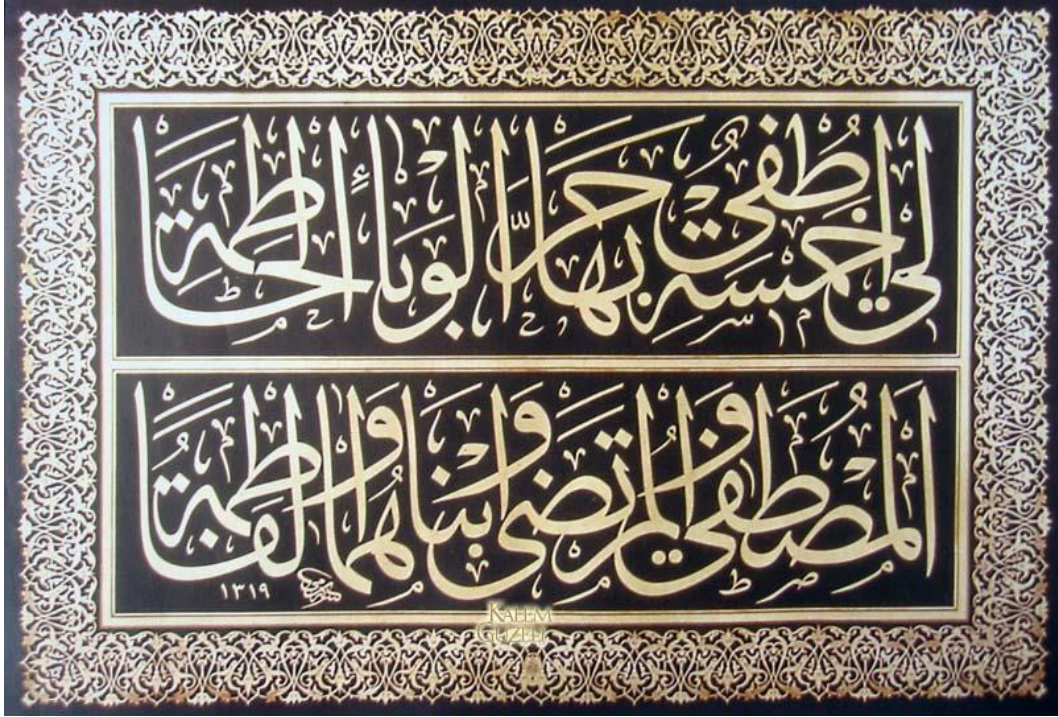 لي خمسة أطفي بها حر الوباء الحاطمة
المصطفى والمرتضى وابناهما والفاطمة
١٣١٩
KALEM
GÜZELİ